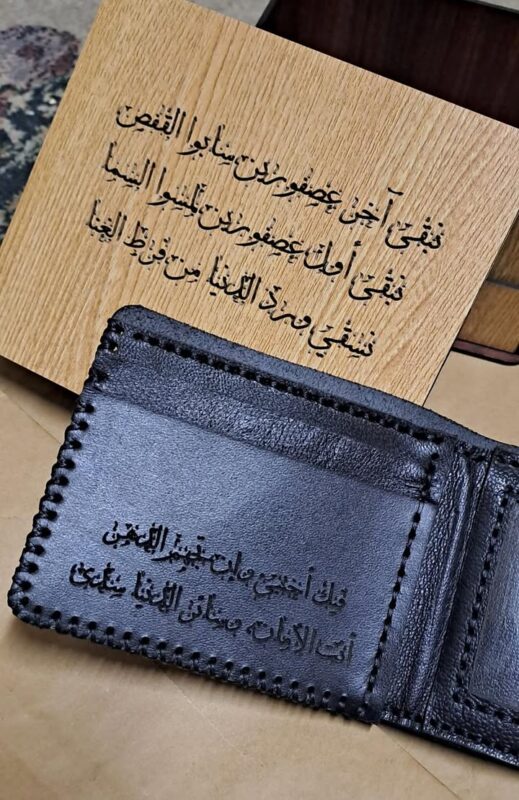 نبقى آخر عصفورين سابوا القفص
نبقى أول عصفورين لمسوا السما
نسقي ورد الدنيا من فرط الغنا
فيك أختبي وإن تجهم الزمن
أنت الأمان وسائر الدنيا سدى